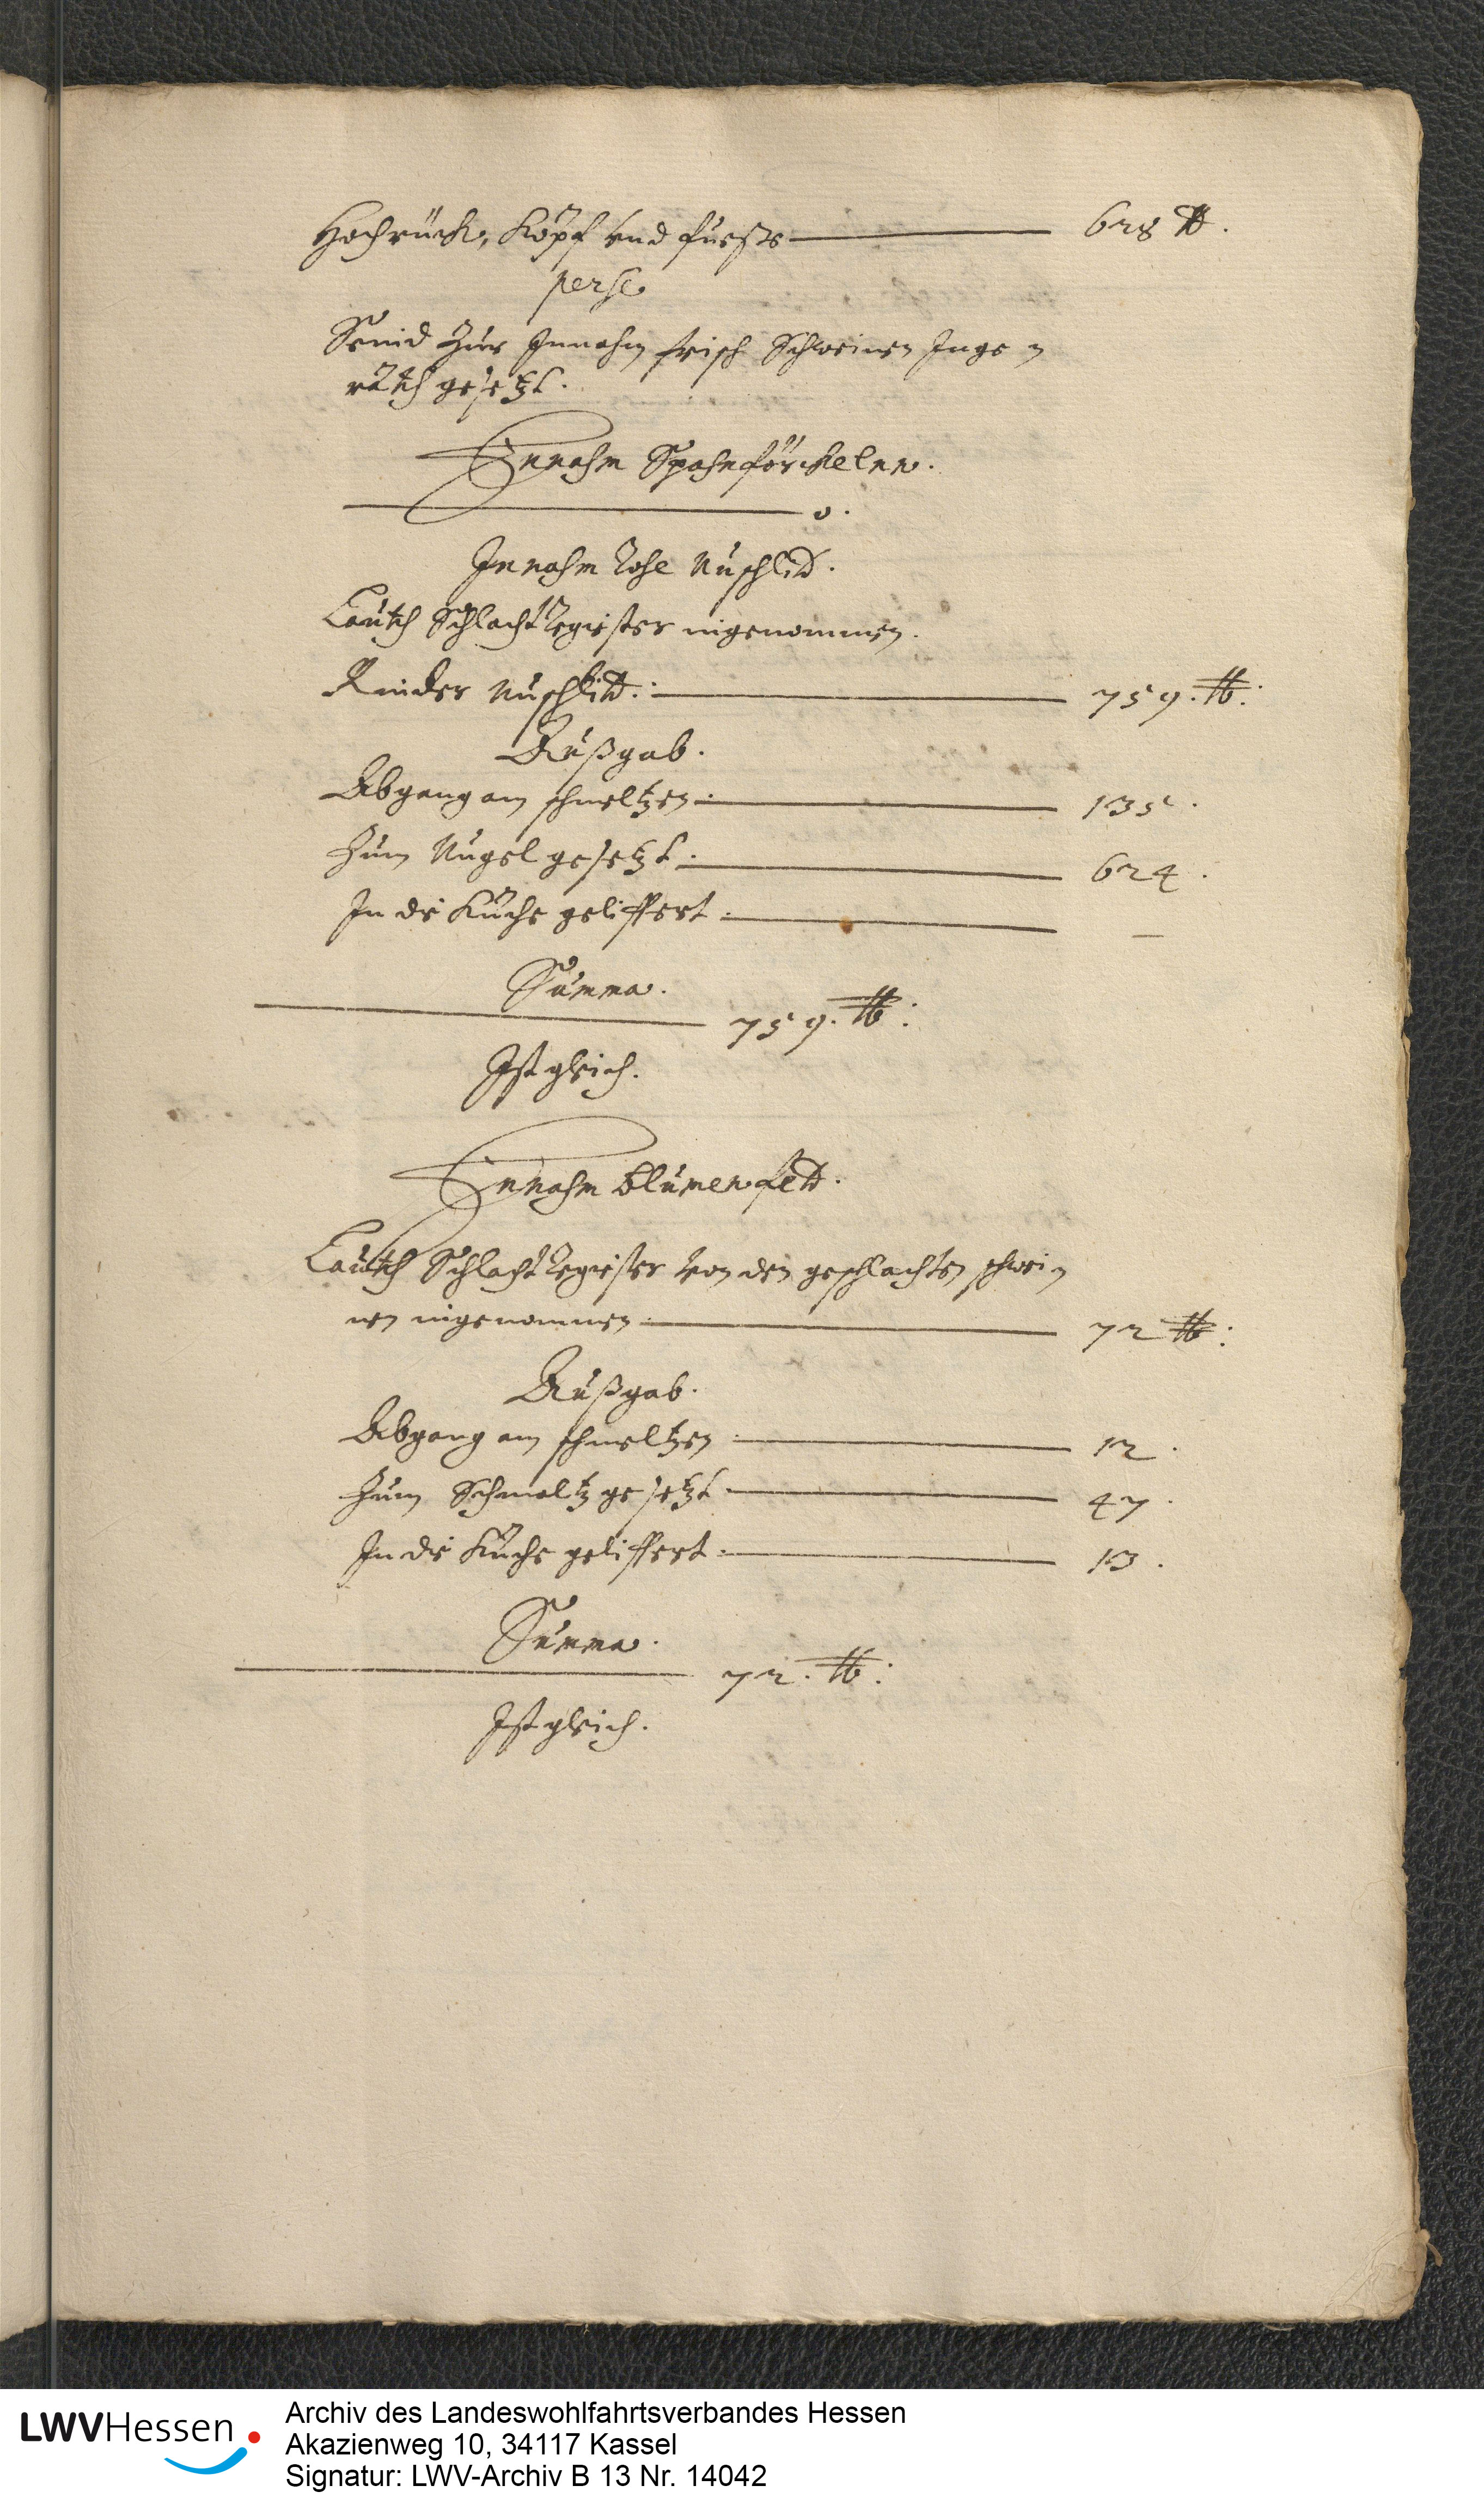 Hochrück, Köpf vnd Fueße 628 ℔.
perse
Seind zur Innahm frisch Schweinen Inge
räth gesetzt.
Innahm Spahnförckelnn.
0.
Innahm Rohe Unschlid.
Lauth Schlacht Register ingenommen.
Rinder Unschlid. 759. ℔:
Außgab.
Abgang am schmeltzen 135.
Zum gesetzt 624.
In die Küche geliffert —
Summa.
759. ℔:
Ist gleich.
Innahm Blumenfett.
Lauth Schlacht Register von den geschlachten schwei
nen ingenommen 72 ℔:
Außgab.
Abgang am schmeltzen 12.
Zum Schmaltz gesetzt 47.
In die Küche geliffert 13.
Summa.
72. ℔:
Ist gleich.
LWVHessen
Archiv des Landeswohlfahrtsverbandes Hessen
Akazienweg 10, 34117 Kassel
Signatur: LWV-Archiv B 13 Nr. 14042